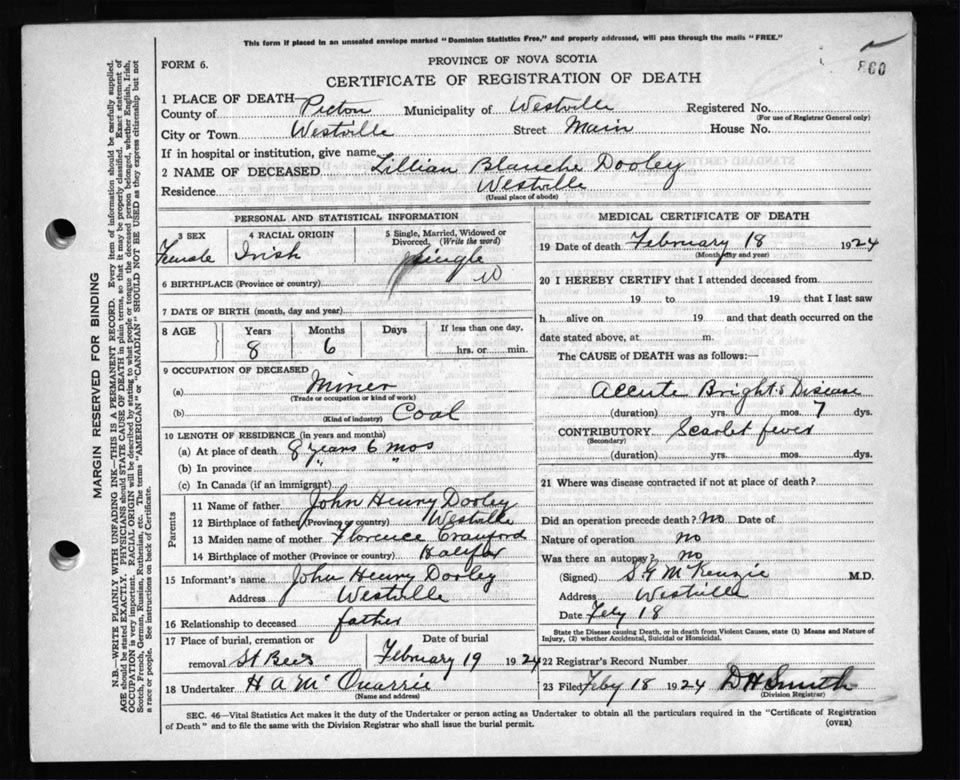 This form if placed in an unsealed envelope marked "Dominion Statistics Free," and properly addressed, will pass through the mails "FREE."
860
FORM 6.
PROVINCE OF NOVA SCOTIA
CERTIFICATE OF REGISTRATION OF DEATH
1 PLACE OF DEATH—
County of Picton Municipality of Westville Registered No.
(For use of Registrar General only)
City or Town Westville Street Main House No.
If in hospital or institution, give name
2 NAME OF DECEASED Lillian Blanche Dooley
Residence Westville
(Usual place of abode)
PERSONAL AND STATISTICAL INFORMATION
3 SEX 4 RACIAL ORIGIN 5 Single, Married, Widowed or Divorced, (Write the word)
Female Irish Single
6 BIRTHPLACE (Province or country)
7 DATE OF BIRTH (month, day and year)
8 AGE Years Months Days If less than one day,
8 6 hrs. or min.
9 OCCUPATION OF DECEASED
(a) Miner
(Trade or occupation or kind of work)
(b) Coal
(Kind of industry)
10 LENGTH OF RESIDENCE (in years and months)
(a) At place of death 8 years 6 mos
(b) In province " "
(c) In Canada (if an immigrant)
Parents
11 Name of father John Henry Dooley
12 Birthplace of father (Province or country) Westville
13 Maiden name of mother Florence Crawford
14 Birthplace of mother (Province or country) Halifax
15 Informant's name John Henry Dooley
Address Westville
16 Relationship to deceased father
17 Place of burial, cremation or removal St Bees
Date of burial February 19 1924
18 Undertaker H A McQuarrie
(Name and address)
MEDICAL CERTIFICATE OF DEATH
19 Date of death February 18 1924
(Month, day and year)
20 I HEREBY CERTIFY that I attended deceased from
19 to 19 that I last saw
h alive on 19 and that death occurred on the
date stated above, at m.
The CAUSE of DEATH was as follows:—
Accute Brights Disease
(duration) yrs. mos. 7 dys.
CONTRIBUTORY Scarlet fever
(Secondary)
(duration) yrs. mos. dys.
21 Where was disease contracted if not at place of death?
Did an operation precede death? No Date of
Nature of operation no
Was there an autopsy? no
(Signed) S G McKenzie M.D.
Address Westville
Date Feby 18
State the Disease causing Death, or in death from Violent Causes, state (1) Means and Nature of
Injury, (2) whether Accidental, Suicidal or Homicidal.
22 Registrar's Record Number
23 Filed Feby 18 1924 D H Smith
(Division Registrar)
SEC. 46—Vital Statistics Act makes it the duty of the Undertaker or person acting as Undertaker to obtain all the particulars required in the "Certificate of Registration
of Death" and to file the same with the Division Registrar who shall issue the burial permit. (OVER)
MARGIN RESERVED FOR BINDING
N.B.—WRITE PLAINLY WITH UNFADING INK—THIS IS A PERMANENT RECORD. Every item of information should be carefully supplied.
AGE should be stated EXACTLY. PHYSICIANS should STATE CAUSE OF DEATH in plain terms, so that it may be properly classified. Exact statement of
OCCUPATION is very important. RACIAL ORIGIN will be described by stating to what people or tongue the deceased person belonged, whether English, Irish,
Scotch, French, German, Russian, Ruthenian, etc. The terms "AMERICAN" or "CANADIAN" SHOULD NOT BE USED as they express citizenship but not
a race or people. See instructions on back of Certificate.